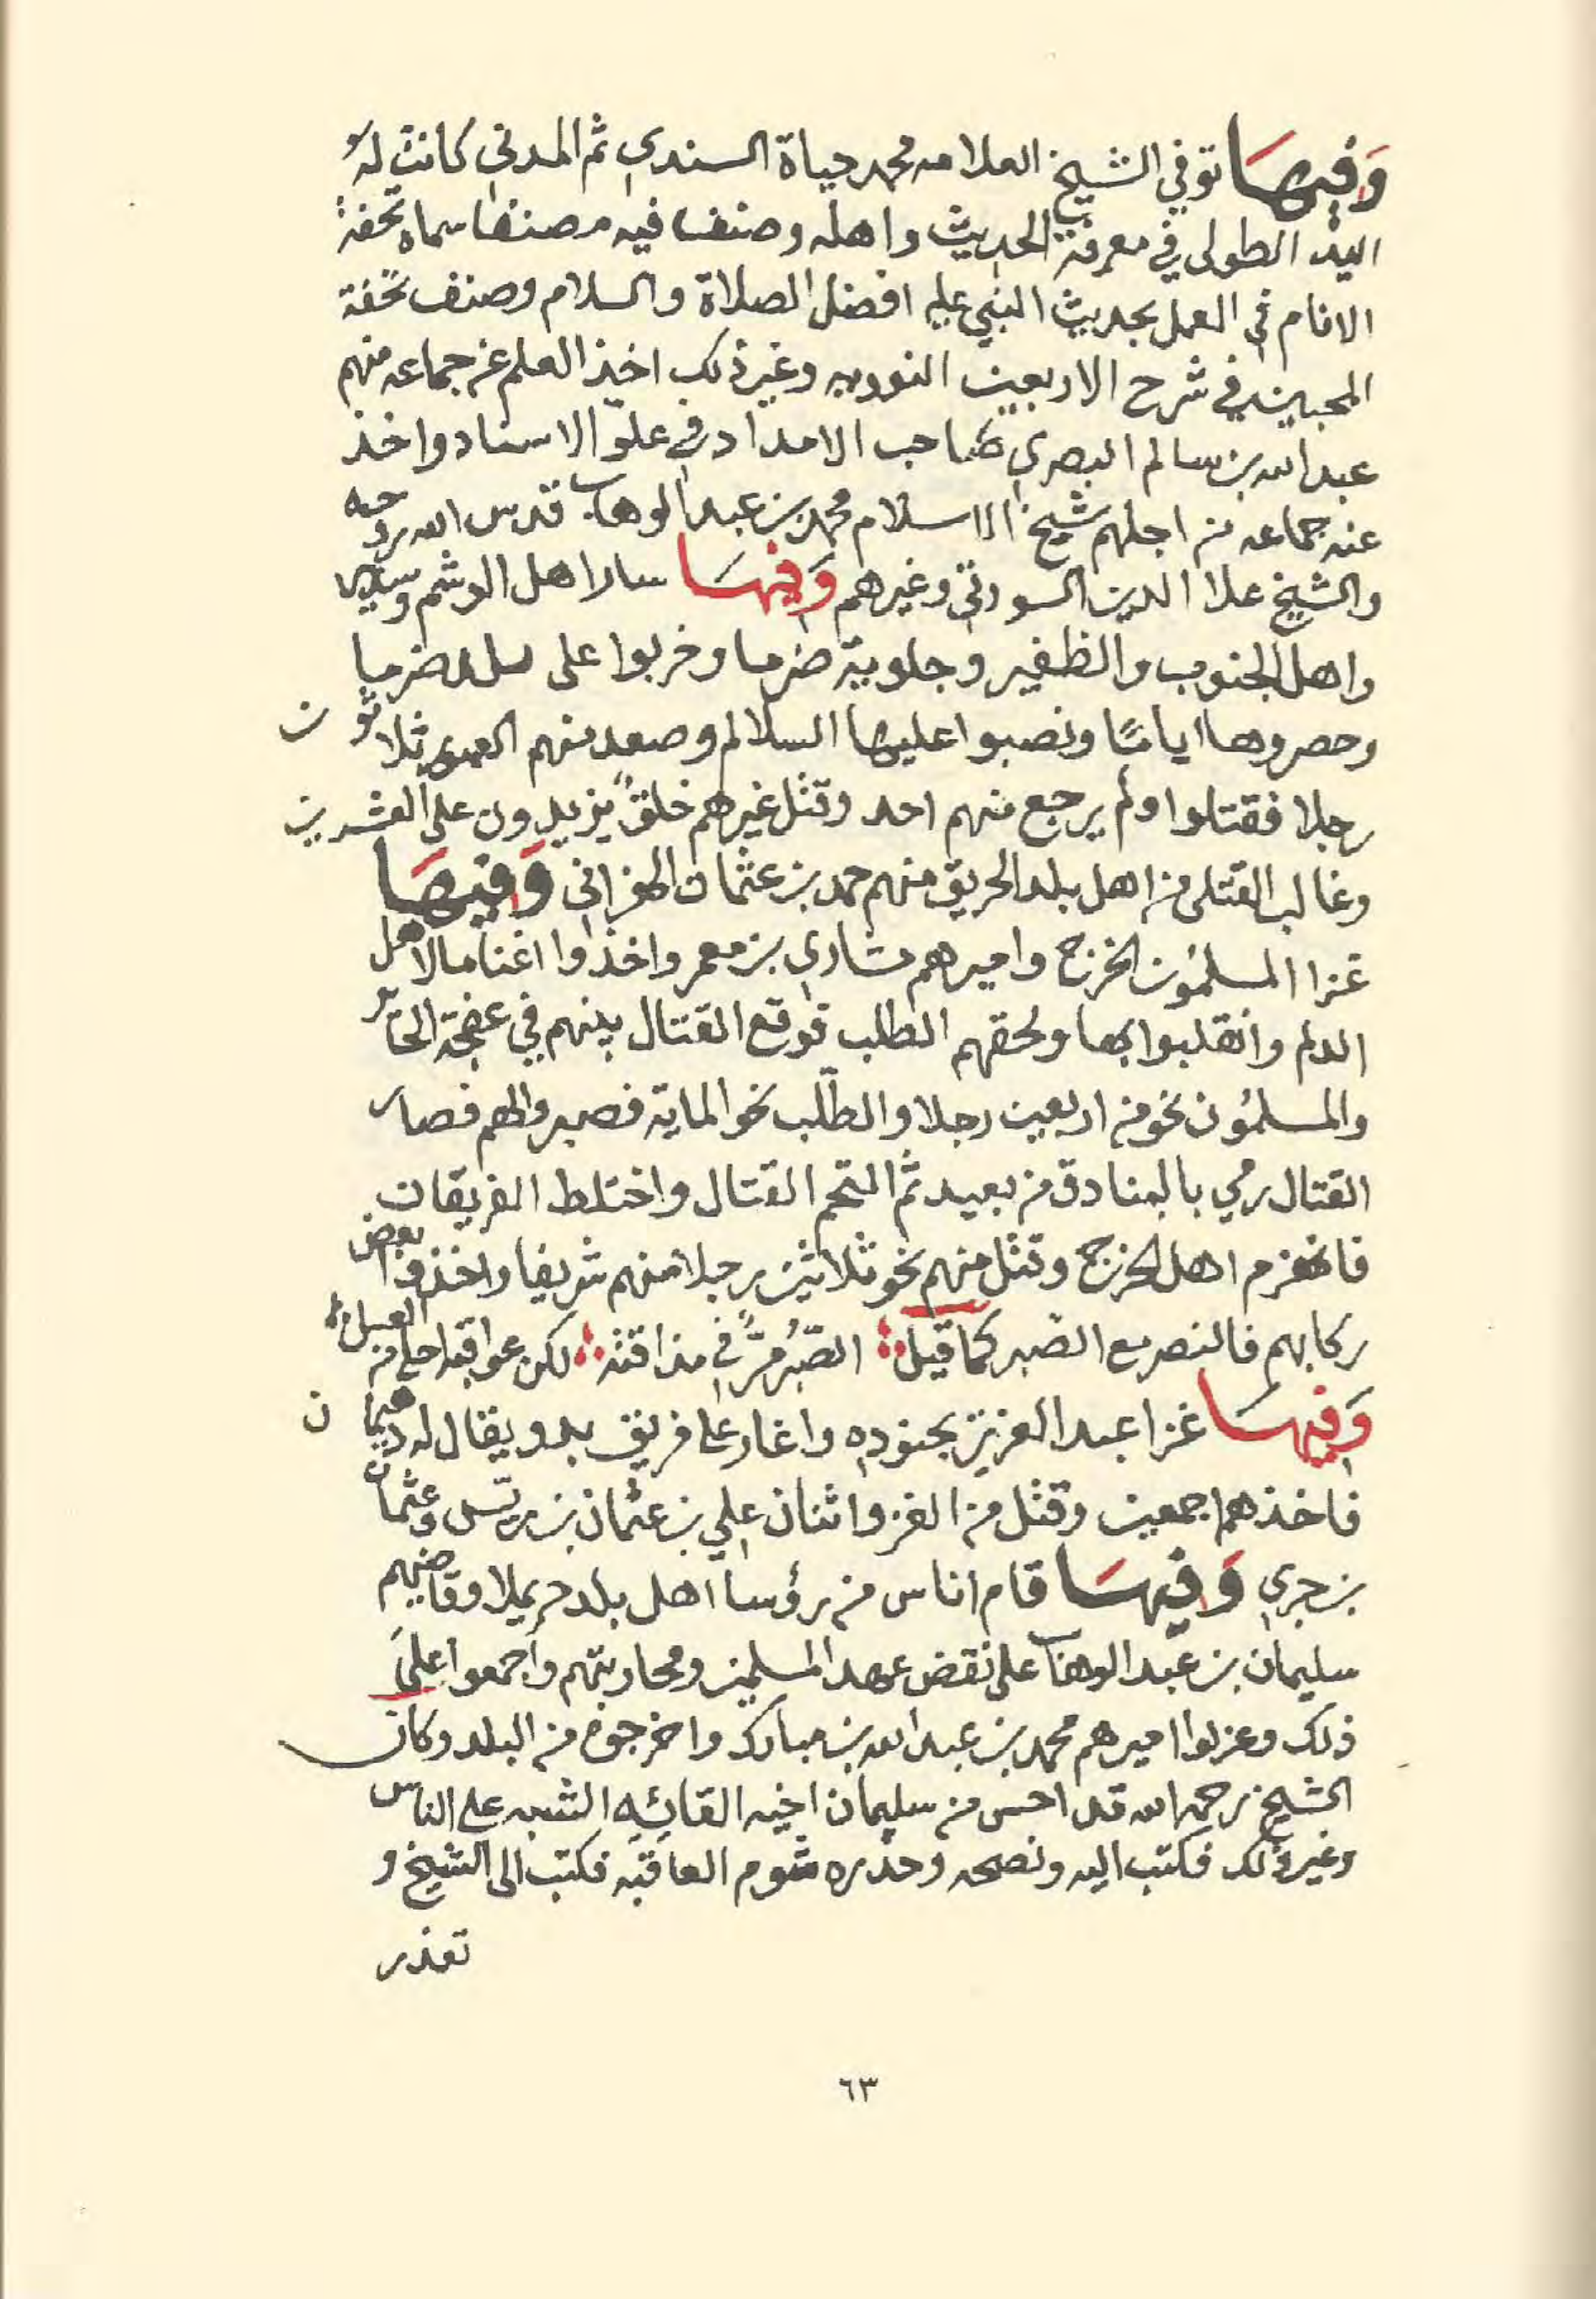 وَفِيهَا توفي الشيخ العلامه محمد حياة السندي ثم المدني كانت لهُ
اليد الطولى في معرفة الحديث واهله وصنف فيه مصنفا سماه تحفة
الانام في العمل بحديث النبي عليه افضل الصلاة والسلام وصنف تحفة
المحبين في شرح الاربعين النوويه وغير ذلك اخذ العلم عن جماعه منهم
عبد الله بن سالم البصري صاحب الامداد في علوّ الاسناد واخذ
عنه جماعه من اجلهم شيخ الاسلام محمد بن عبد الوهاب قدس الله روحه
والشيخ علا الدين السورتي وغيرهم وَفِيهَا سار اهل الوشم وسدير
واهل الجنوب والظفير وجلوية ضرما وخربوا على بلد ضرما
وحصروها ايامًا ونصبوا عليها السلالم وصعد منهم ثلاثون
رجلا فقتلوا ولم يرجع منهم احد وقتل غيرهم خلقٌ يزيدون على العشرين
وغالب القتلى من اهل بلد الحريق منهم حمد بن عثمان الهزاني وَفِيهَا
غزا المسلمُون الخرج واميرهم مشاري بن معمر واخذوا اغناما لاهل
الدلم وانقلبوا بها ولحقهم الطلب فوقع القتال بينهم في عفجة الحاير
والمسلمُون نحو من اربعين رجلا والطلب نحو الماية فصبروا لهم فصار
القتال رمي بالبنادق من بعيد ثم التحم القتال واختلط الفريقان
فانهزم اهل الخرج وقتل منهم نحو ثلاثين رجلا منهم شريفا واخذوا بعض
ركابهم فالنصر مع الصبر كما قيل الصَّبْرُ مُرٌّ في مذاقته لكن عواقبه احلى من العسل
وَفِيهَا غزا عبد العزيز بجنوده واغار على فريق بدو يقال له دهيمان
فاخذهم اجمعين وقتل من الغزو اثنان علي بن عثمان بن ريّس وعثمان
بن جري وَفِيهَا قام اناس من رؤسا اهل بلد حريملا وقاضيهم
سليمان بن عبد الوهاب على نقض عهد المسلمين ومحاربتهم واجمعوا علىَ
ذلك وعزلوا اميرهم محمد بن عبد الله بن مبارك واخرجوه من البلد وكان
الشيخ رحمه الله قد احس من سليمان اخيه القائِهِ الشبه على الناس
وغير ذلك فكتب اليه ونصحه وحذره شوم العاقبه فكتب الى الشيخ و
تعذر
٦٣